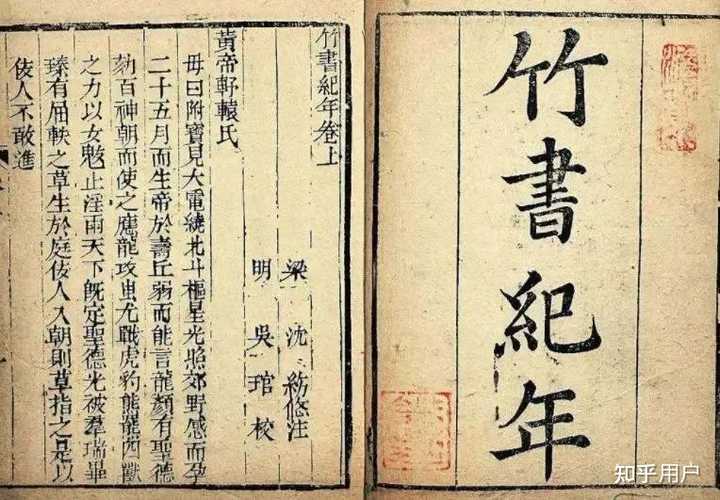 竹書紀年
竹書紀年卷上
梁 沈約 注
明 吳琯校
黃帝軒轅氏
母曰附寶見大電繞北斗樞星光照郊野感而孕
二十五月而生帝於壽丘弱而能言龍顏有聖德
劾百神朝而使之應龍攻蚩尤戰虎豹熊羆四獸
之力以女魃止淫雨天下既定聖德光被羣瑞畢
臻有屈軼之草生於庭佞人入朝則草指之是以
佞人不敢進
知乎用户